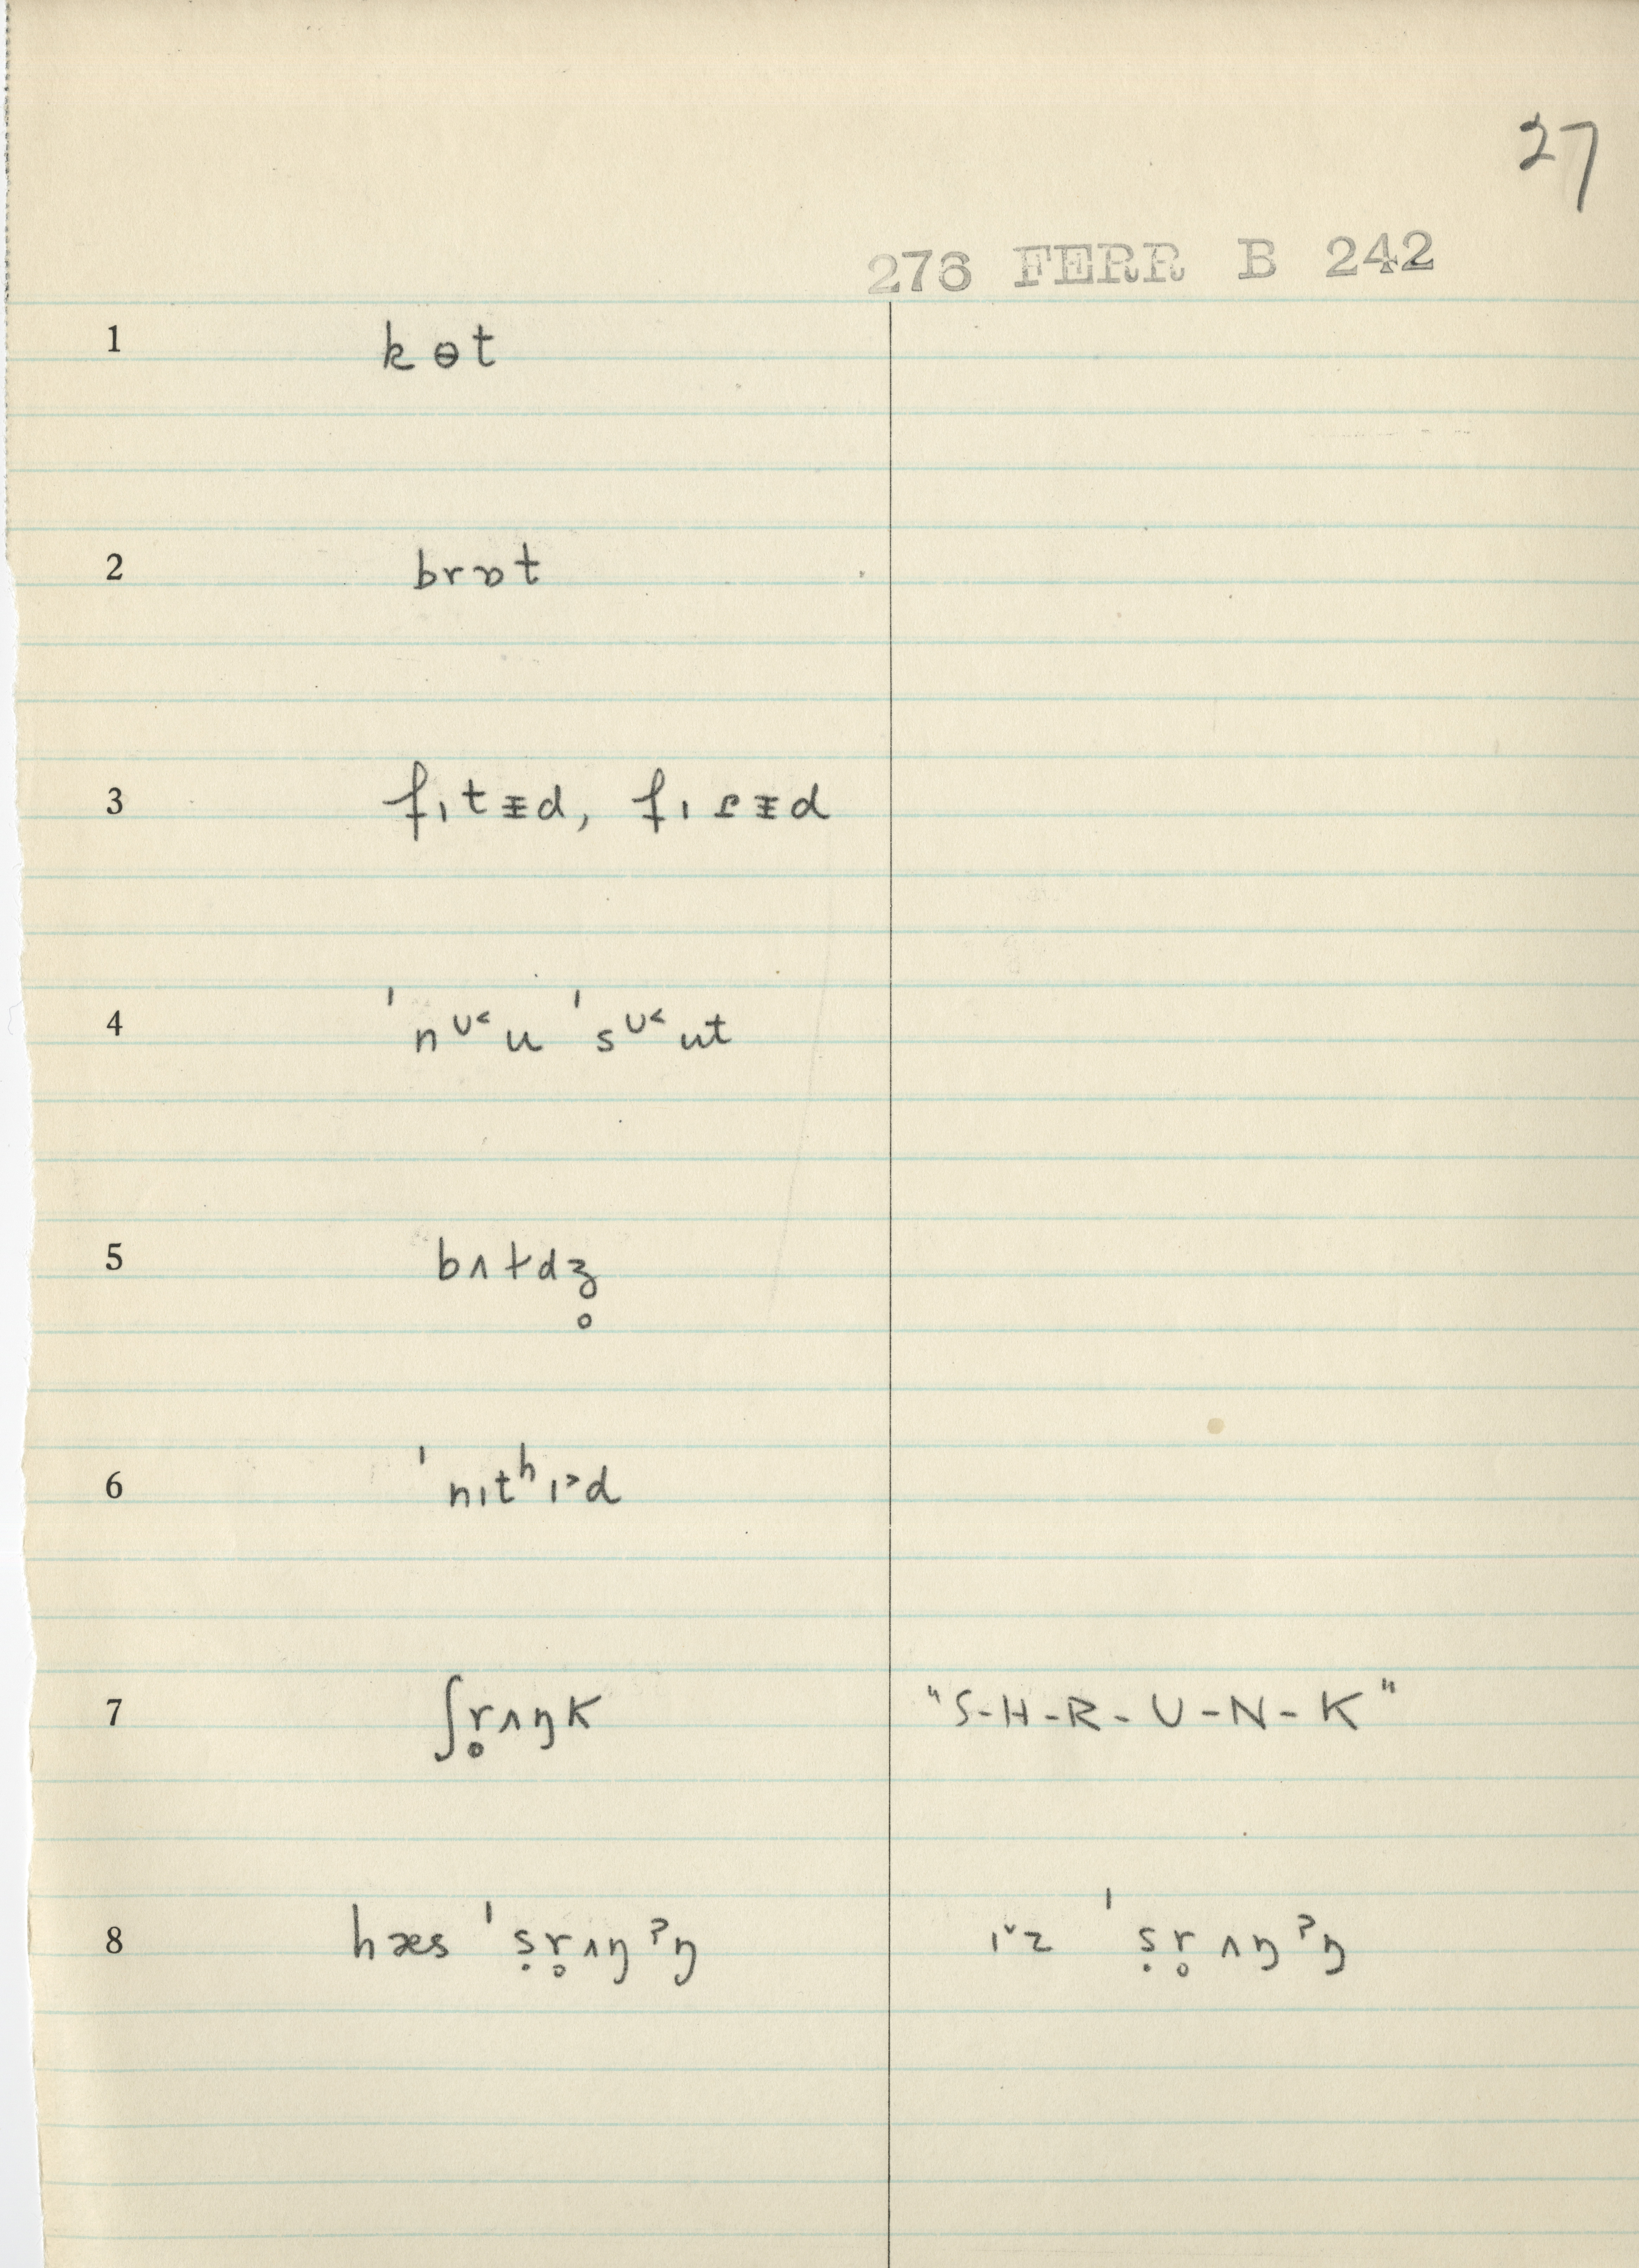 27
276 FERR B 242
1 kɵt
2 brɒt
3 fɪtᵻd, fɪɾᵻd
4 ˈnᶷ˂u ˈsᶷ˂ut
5 bʌɫdʒ̥
6 ˈnɪtʰɪ˃d
7 ʃr̥ʌŋk "S-H-R-U-N-K"
8 hæs ˈṣr̥ʌŋˀŋ ɪˇz ˈṣr̥ʌŋˀŋ